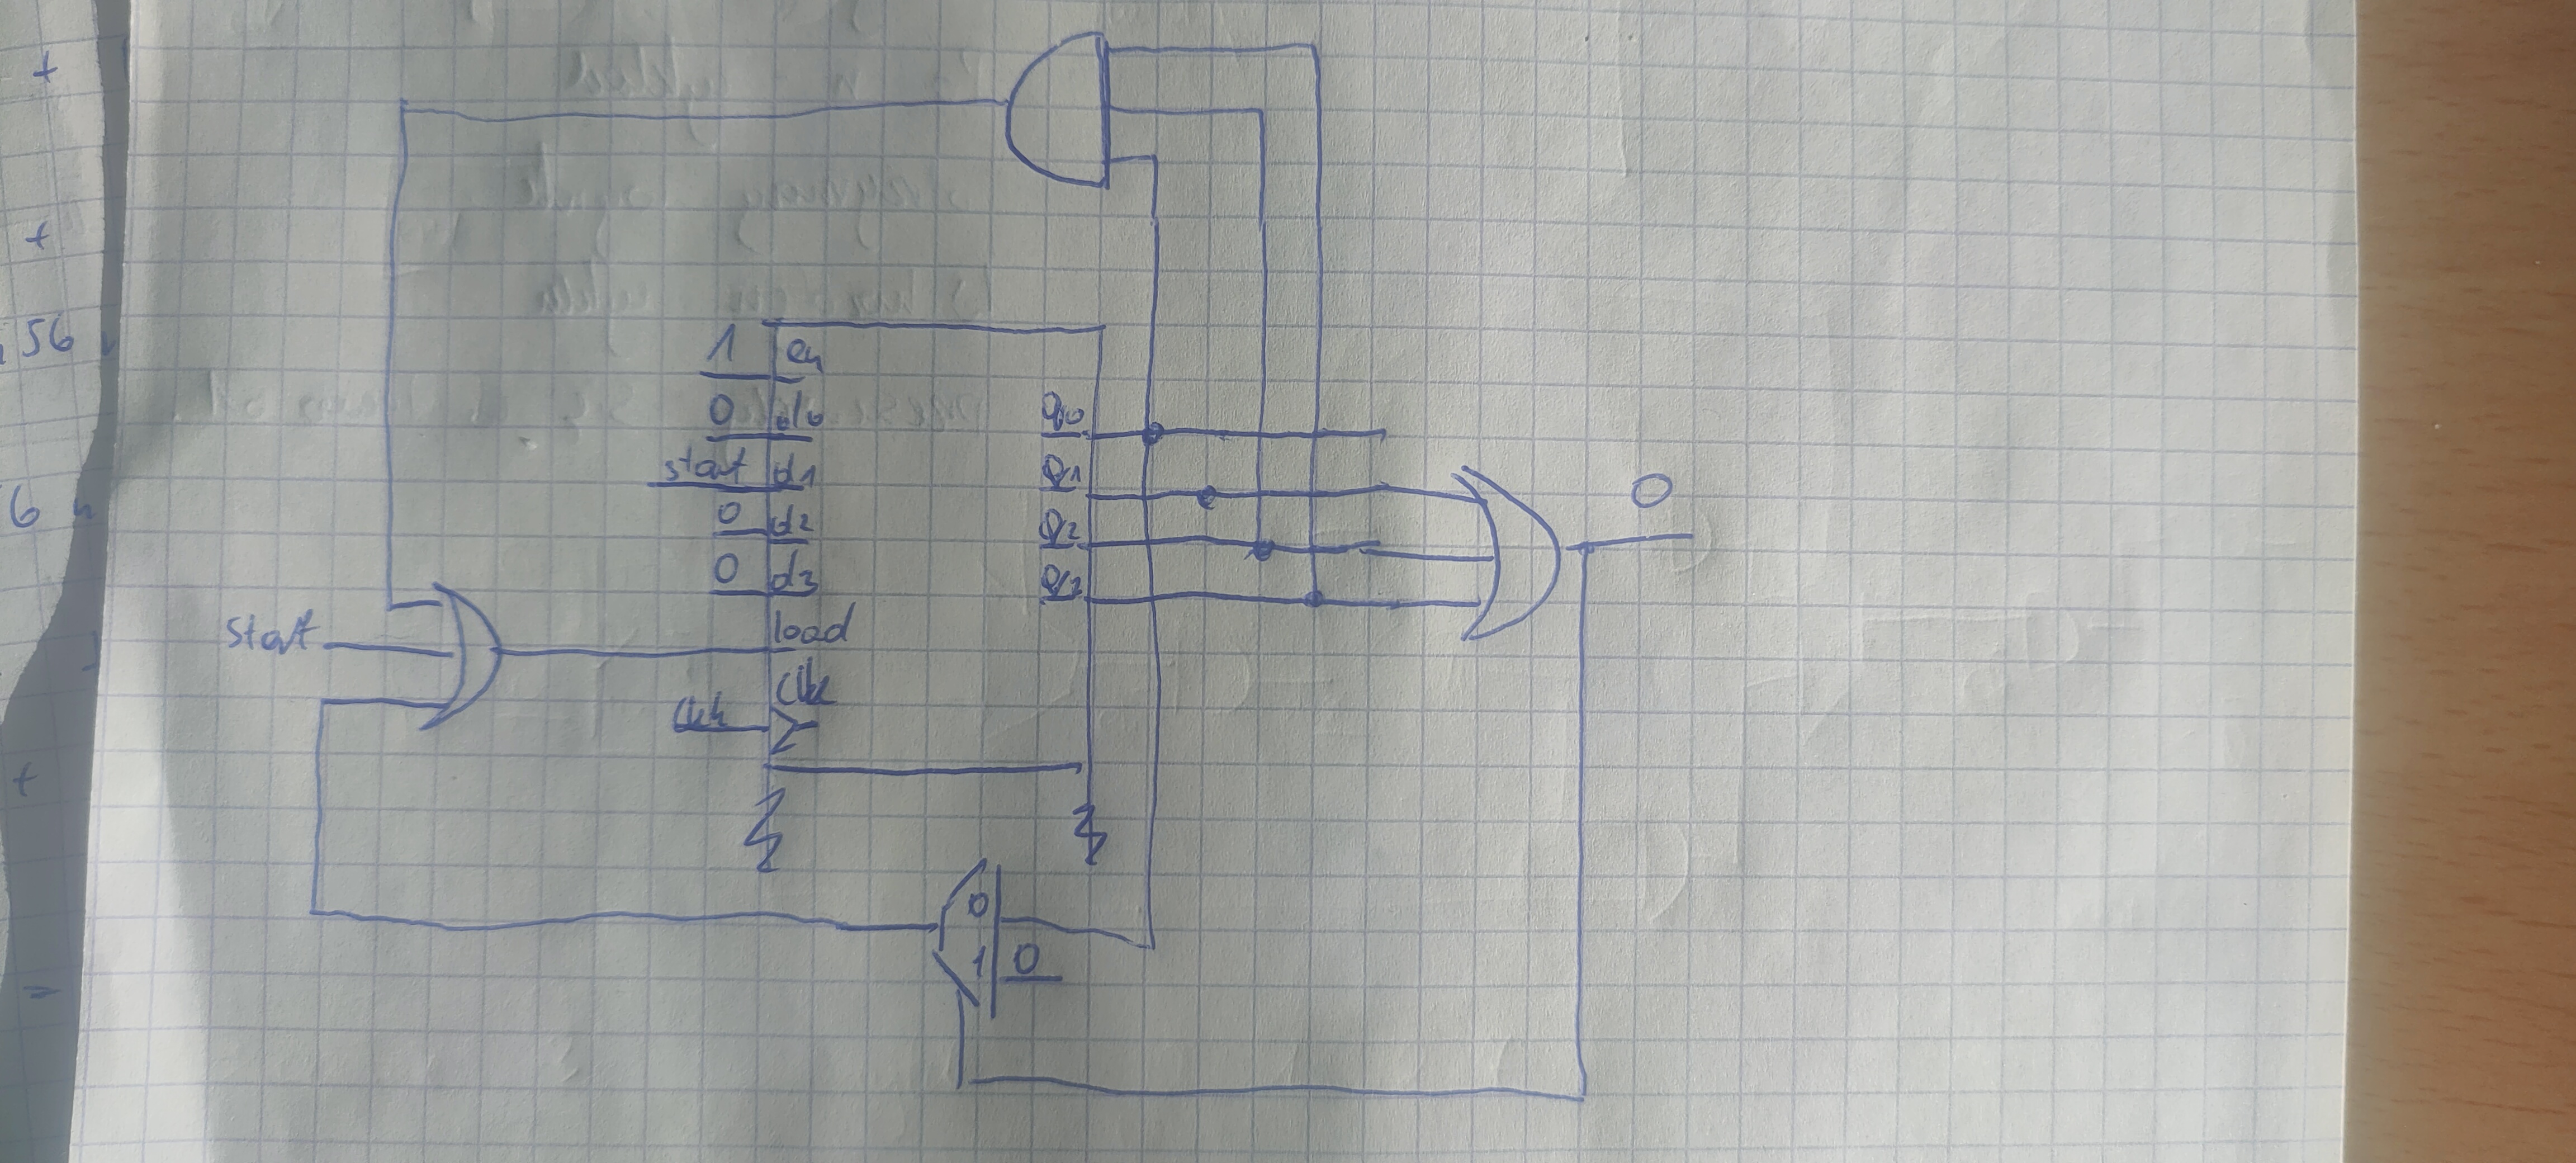 +
+
56
6 h
+
=
1 en
0 d0
start d1
0 d2
0 d3
load
Clk
Clk
Q0
Q1
Q2
Q3
start
O
0
1 0